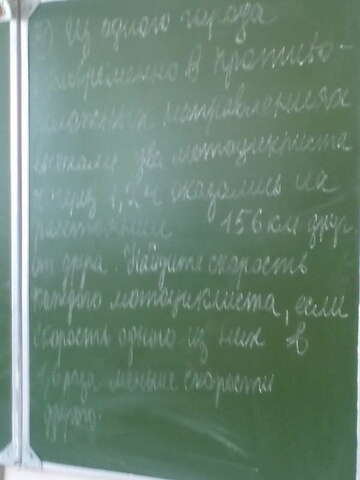 ) Из одного города
одновременно в противо-
положных направлениях
выехали два мотоциклиста
и через 1,2 ч оказались на
расстоянии 156 км друг
от друга. Найдите скорость
каждого мотоциклиста, если
скорость одного из них в
раза меньше скорости
другого.